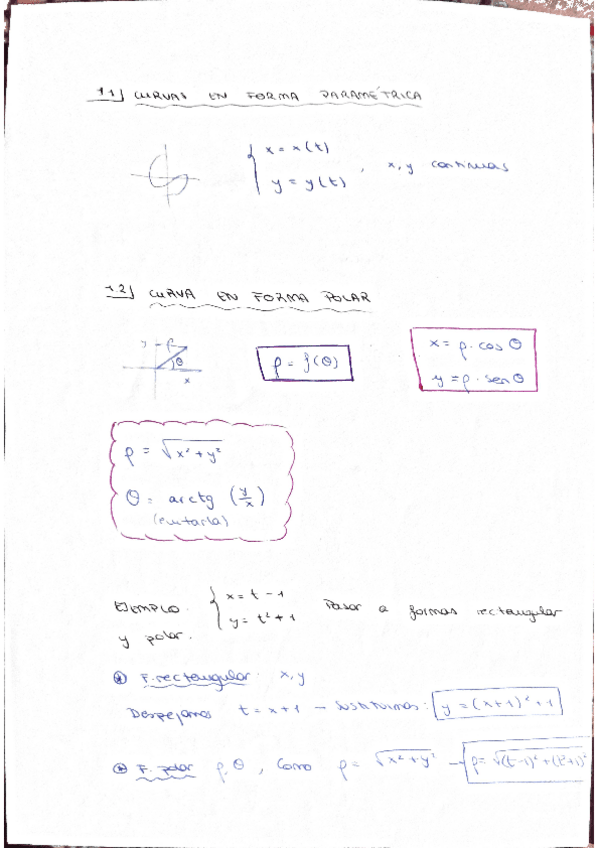 1.1] CURVAS EN FORMA PARAMÉTRICA
{ x = x(t)
y = y(t) , x, y continuas
1.2] CURVA EN FORMA POLAR
y ρ θ x
ρ = f(θ)
x = ρ · cos θ
y = ρ · sen θ
ρ = √(x² + y²)
θ = arctg (y/x)
(evitarla)
EJEMPLO. { x = t - 1
y = t² + 1 Pasar a formas rectangular
y polar.
* F. rectangular. x, y
Despejamos t = x + 1 – sustituimos: y = (x+1)² + 1
* F. polar ρ, θ , como ρ = √(x² + y²) → ρ = √((t-1)² + (t²+1)²